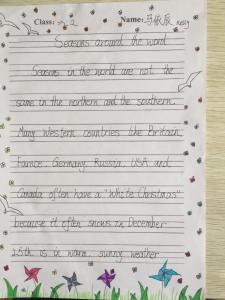 Class: 2 Name: Kelly
Seasons around the word
Seasons in the world are not the
same in the northern and the southern.
Many Western countries like Britain,
Farnce, Germany, Russia, USA and
Canada often have a "White Christmas"
because it often snows in December
25th is in warm, sunny weather